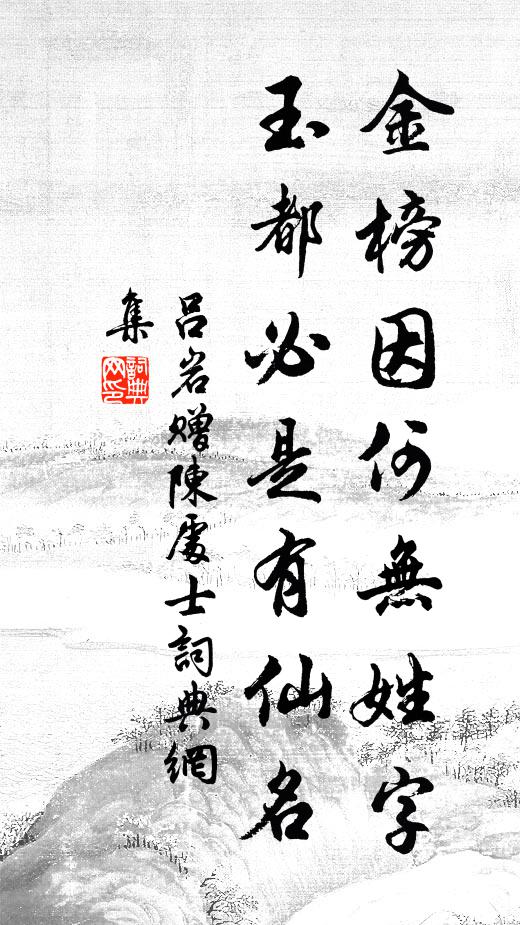 金榜因何無姓字
玉都必是有仙名
吕岩贈陳處士詞典網
集
詞典
网印